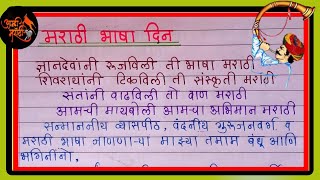 मराठी भाषा दिन
ज्ञानदेवांनी रुजविली ती भाषा मराठी
शिवरायांनी टिकविली ती संस्कृती मराठी
संतांनी वाढविली तो वाण मराठी
आमची मायबोली आमचा अभिमान मराठी
सन्माननीय व्यासपीठ, वंदनीय गुरुजनवर्ग व
मराठी भाषा जाणणा-या माझ्या तमाम बंधू आणि
भगिनींनो,